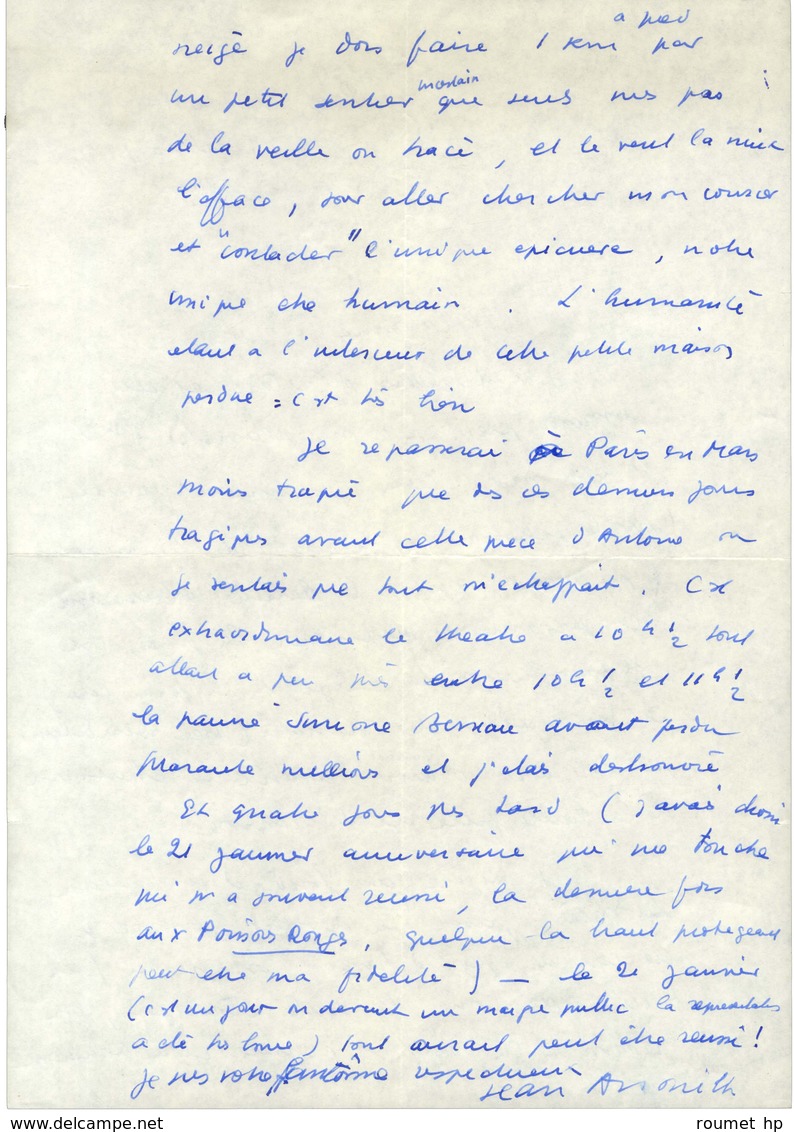 à pied
neige je dois faire 1 km par
un petit sentier que seuls mes pas
de la veille on tracé, et le vent la nuit
l'efface, pour aller chercher mon courrier
et " " l'unique epiciere, notre
unique etre humain. L'humanité
etant a l'interieur de cette petite maison
perdue = c'est très bien
Je repasserai à Paris en Mars
moins traqué que des ces derniers jours
tragiques avant cette piece d'Antoine ou
je sentais que tout m'echappait. C'est
extraordinaire le theatre a 10 h ½ tout
allait a peu près entre 10 h ½ et 11 h ½
la pauvre Simone Berriau avait perdu
quarante millions et j'etais deshonoré
Et quatre jours plus tard (j'avais choisi
le 21 janvier anniversaire qui me touche
qui m'a souvent reussi, la derniere fois
aux Poissons Rouges, quelqu'un là haut protegeant
peut etre ma fidelité) — le 21 janvier
(c'est un jour ou devant un maigre public la representation
a été très bonne) tout aurait peut être reussi !
Je suis votre fantôme respectueux
Jean Anouilh
roumet hp